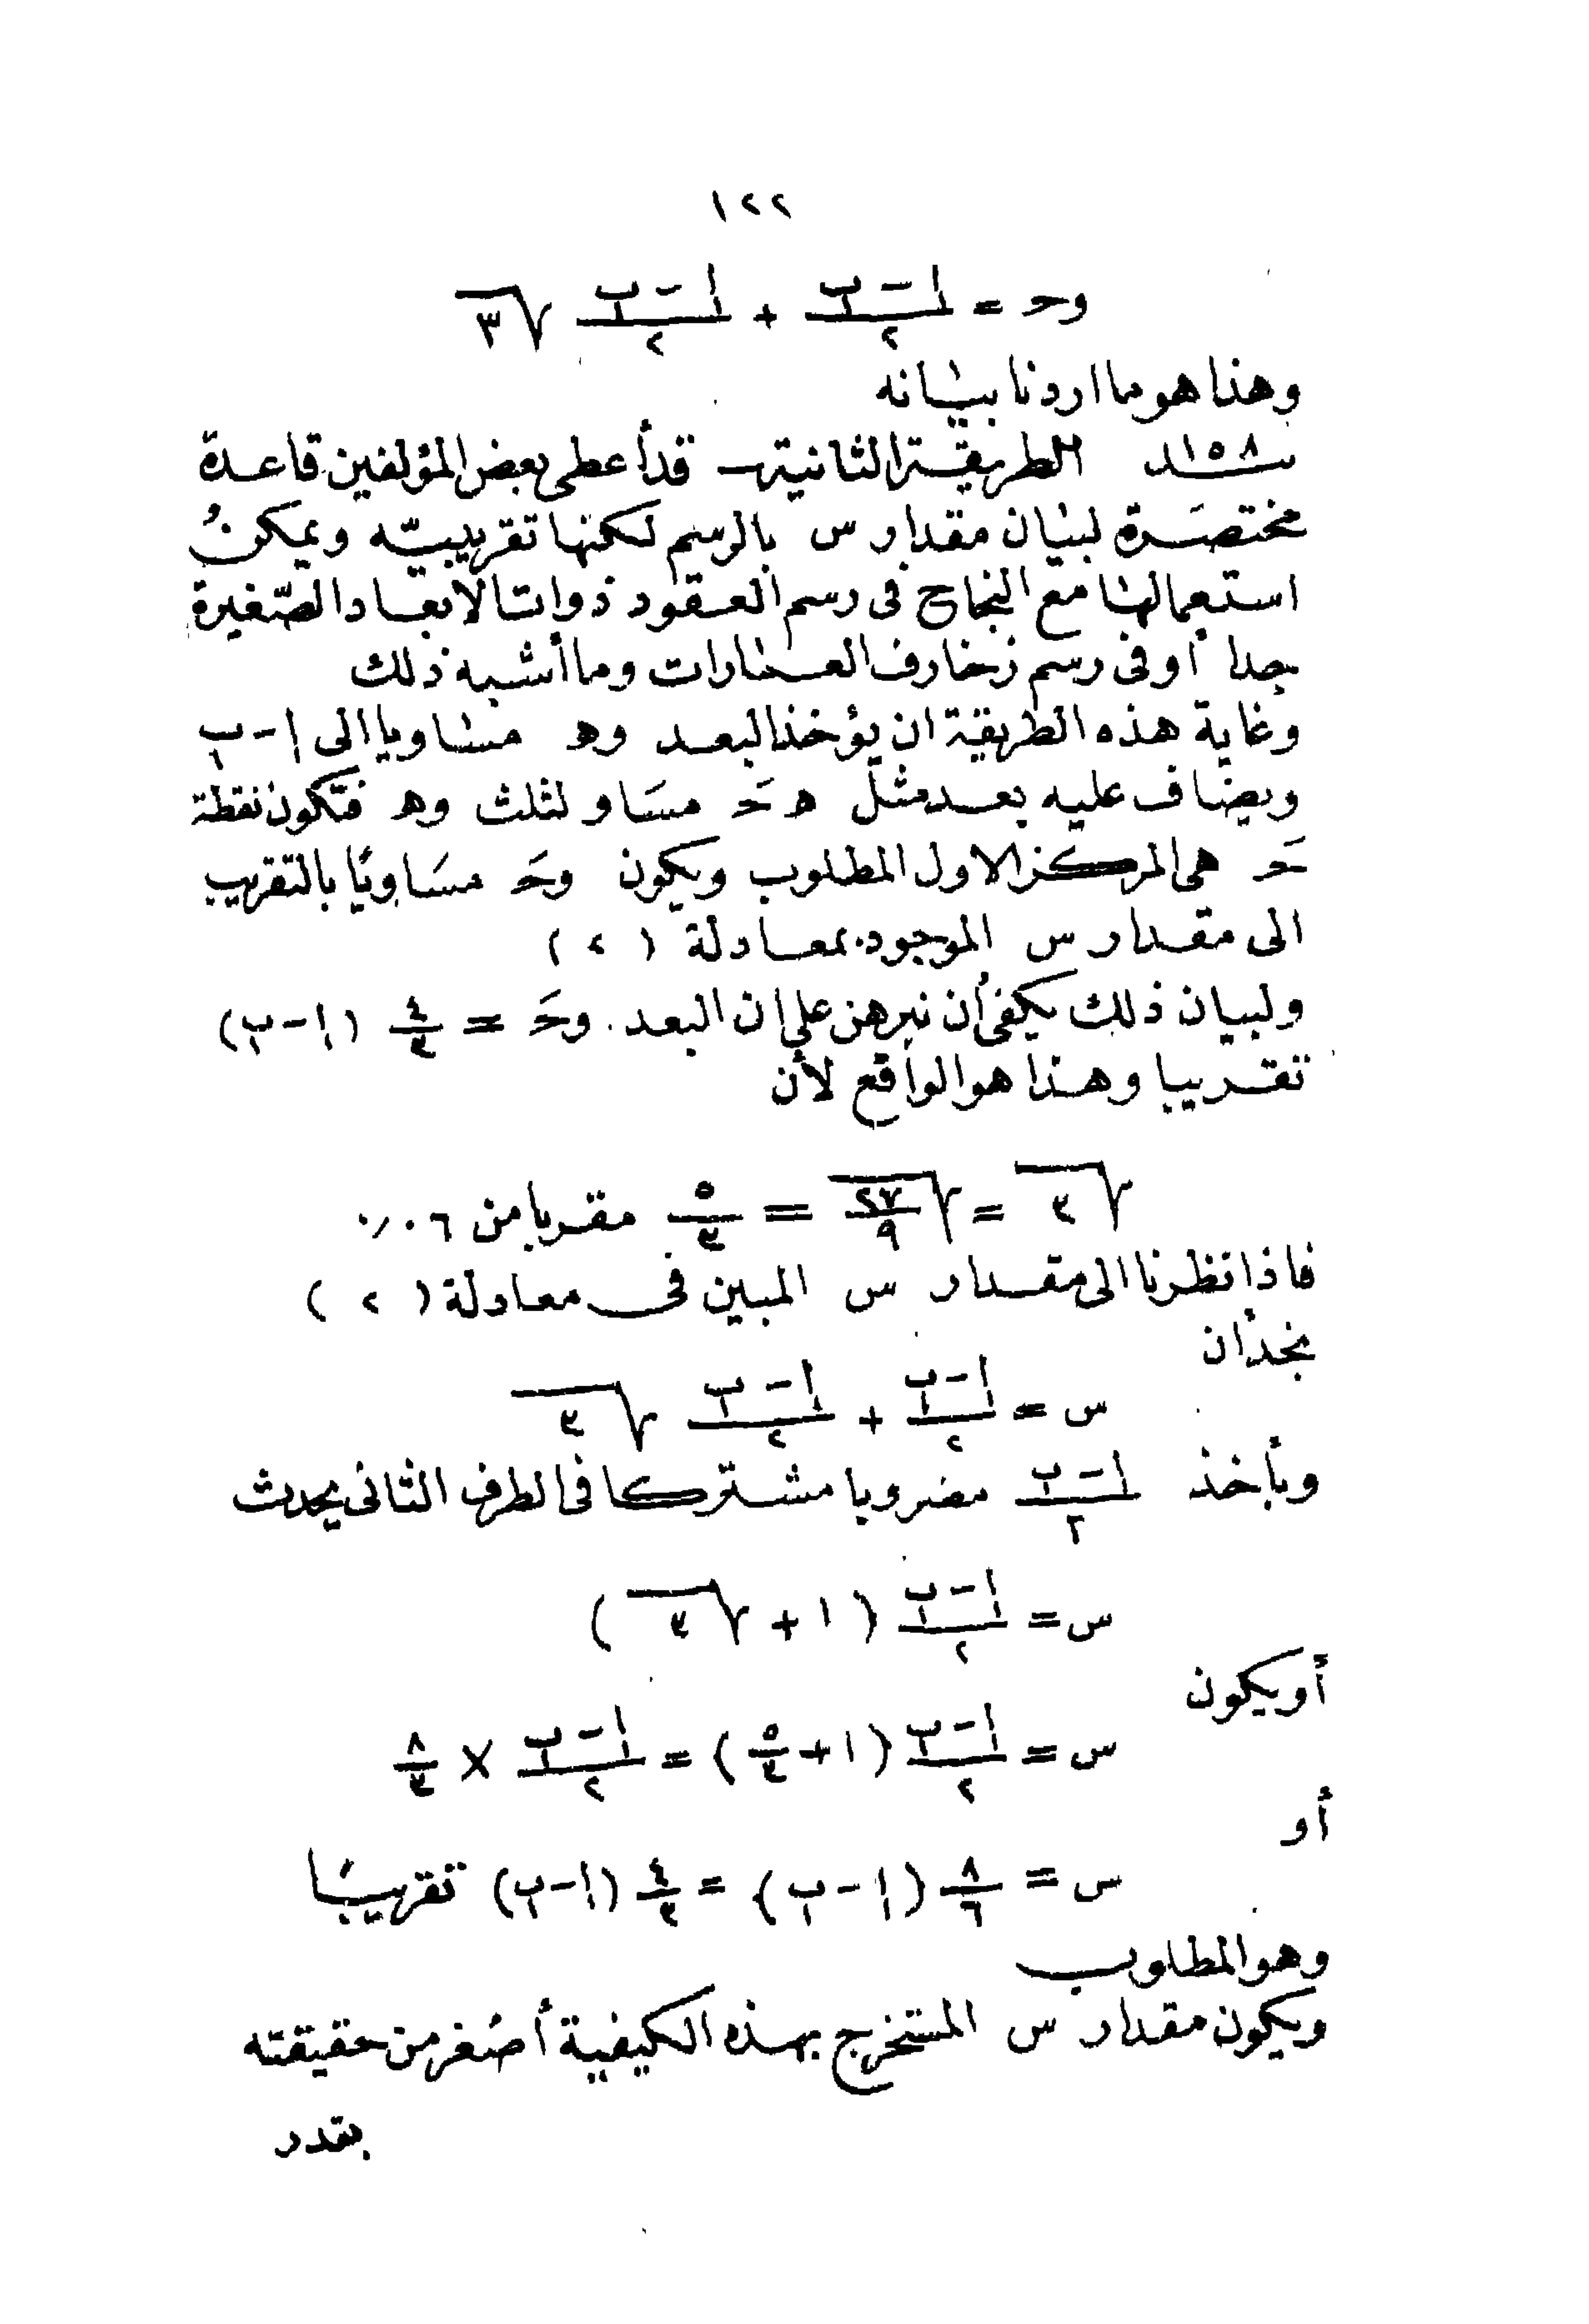 ١٢٢
وح = (ا₁ - ب₁)/٢ + (ا₁ - ب₁)/٢ √٣
وهذا هو ما اردنا بيانه
١٥٨ الطريقة الثانية ـ قد أعطى بعض المؤلفين قاعدة
مختصرة لبيان مقدار س بالرسم لكنها تقريبيّه ويمكنُ
استعمالها مع النجاح فى رسم العقود ذوات الابعاد الصّغيرة
جدا أوفى رسم زخارف العمارات وما أشبه ذلك
وغاية هذه الطريقة ان يؤخذ البعد وه مساويا الى ا₁ - ب₁
ويضاف عليه بعد مثل ه حَ مسَاو لثلث وه فتكون نقطة
حَ هى المركز الاول المطلوب ويكون وحَ مسَاويًا بالتقريب
الى مقدار س الموجود بمعادلة (٢)
ولبيان ذلك يكفى أن نبرهن على ان البعد وحَ = ٤/٣ (ا₁ - ب₁)
تقريبا وهذا هو الواقع لأن
√٣ = √(٢٧/٩) = ٥/٣ مقربا من ٠٦٪
فاذا نظرنا الى مقدار س المبين فى معادلة (٢)
نجد أن
س = (ا₁ - ب₁)/٢ + (ا₁ - ب₁)/٢ √٣
وبأخذ (ا₁ - ب₁)/٢ مضروبا مشتركا فى الطرف الثانى يحدث
س = (ا₁ - ب₁)/٢ (١ + √٣)
أو يكون
س = (ا₁ - ب₁)/٢ (١ + ٥/٣) = (ا₁ - ب₁)/٢ × ٨/٣
أو
س = ٨/٦ (ا₁ - ب₁) = ٤/٣ (ا₁ - ب₁) تقريبًا
وهو المطلوب
ويكون مقدار س المستخرج بهذه الكيفية أصغر من حقيقته
بقدر